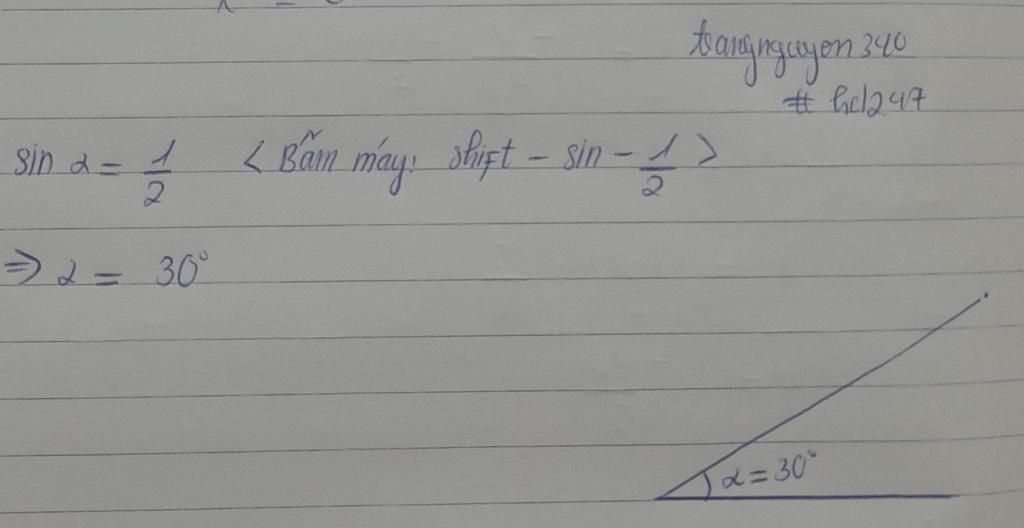 trangnguyen340
# hd247
sin α = 1/2 < Bấm máy: shift - sin - 1/2 >
=> α = 30°
α = 30°